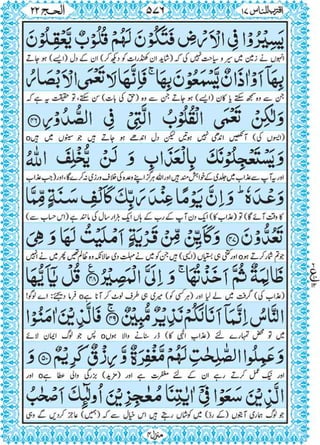 الحج ٢٢ ٥٧٦ اقترب للناس ١٧
يَسِيْرُوْا فِي الْاَرْضِ فَتَكُوْنَ لَهُمْ قُلُوْبٌ يَّعْقِلُوْنَ
انہوں نے زمین میں سیر و سیاحت نہیں کی کہ (شاید ان کھنڈرات کو دیکھ کر) ان کے دل (ایسے) ہو جاتے
بِهَاۤ اَوْ اٰذَانٌ يَّسْمَعُوْنَ بِهَا ۚ فَاِنَّهَا لَا تَعْمَى الْاَبْصَارُ
جن سے وہ سمجھ سکتے یا کان (ایسے) ہو جاتے جن سے وہ (حق کی بات) سن سکتے، تو حقیقت یہ ہے کہ
وَلٰكِنْ تَعْمَى الْقُلُوْبُ الَّتِيْ فِي الصُّدُوْرِ ﴿٤٦﴾
(ایسوں کی) آنکھیں اندھی نہیں ہوتیں لیکن دل اندھے ہو جاتے ہیں جو سینوں میں ہیں
وَيَسْتَعْجِلُوْنَكَ بِالْعَذَابِ وَلَنْ يُّخْلِفَ اللّٰهُ
اور یہ آپ سے عذاب میں جلدی کے خواہش مند ہیں اور اللہ ہرگز اپنے وعدہ کی خلاف ورزی نہ کرے گا، اور (جب عذاب
وَعْدَهٗ ؕ وَاِنَّ يَوْمًا عِنْدَ رَبِّكَ كَاَلْفِ سَنَةٍ مِّمَّا
کا وقت آئے گا) تو (عذاب کا) ایک دن آپ کے رب کے ہاں ایک ہزار سال کی مانند ہے (اس حساب سے)
تَعُدُّوْنَ ﴿٤٧﴾ وَكَاَيِّنْ مِّنْ قَرْيَةٍ اَمْلَيْتُ لَهَا وَهِيَ
جو تم شمار کرتے ہو اور کتنی ہی بستیاں (ایسی) ہیں جن کو میں نے مہلت دی حالانکہ وہ ظالم تھیں پھر میں نے انہیں
ظَالِمَةٌ ثُمَّ اَخَذْتُهَا ۚ وَاِلَيَّ الْمَصِيْرُ ﴿٤٨﴾ قُلْ يٰۤاَيُّهَا
(عذاب کی) گرفت میں لے لیا اور (ہر کسی کو) میری ہی طرف لوٹ کر آنا ہے فرما دیجئے: اے لوگو!
النَّاسُ اِنَّمَاۤ اَنَا لَكُمْ نَذِيْرٌ مُّبِيْنٌ ﴿٤٩﴾ فَالَّذِيْنَ اٰمَنُوْا
میں تو محض تمہارے لئے (عذاب الٰہی کا) ڈر سنانے والا ہوں پس جو لوگ ایمان لائے
وَعَمِلُوا الصّٰلِحٰتِ لَهُمْ مَّغْفِرَةٌ وَّرِزْقٌ كَرِيْمٌ ﴿٥٠﴾ وَ
اور نیک عمل کرتے رہے ان کے لئے مغفرت ہے اور (مزید) بزرگی والی عطا ہے اور
الَّذِيْنَ سَعَوْا فِيْۤ اٰيٰتِنَا مُعٰجِزِيْنَ اُولٰٓئِكَ اَصْحٰبُ
جو لوگ ہماری آیتوں (کے رد) میں کوشاں رہتے ہیں اس خیال سے کہ (ہمیں) عاجز کردیں گے وہی
منزل ٤